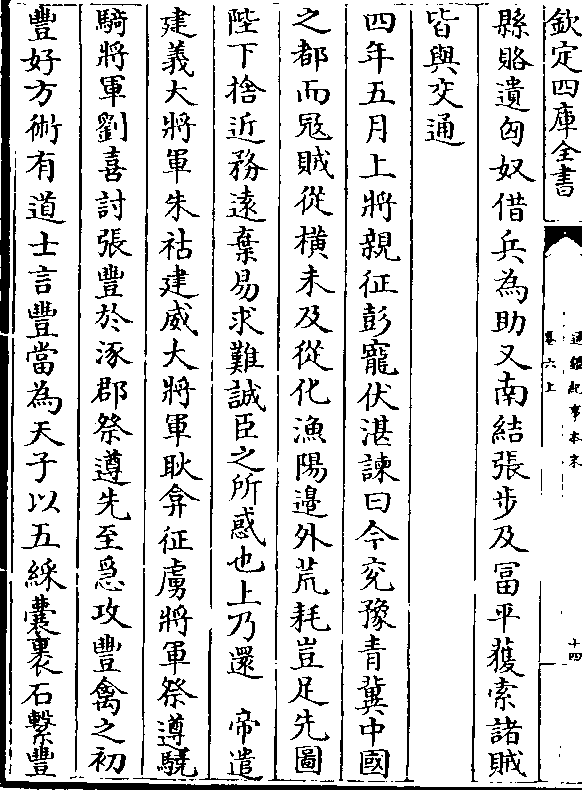 欽定四庫全書
通鑑紀事本末
卷六上
十四
縣賂遺匈奴借兵為助又南結張步及富平獲索諸賊
皆與交通
四年五月上將親征彭寵伏湛諫曰今兖豫青冀中國
之都而冦賊從橫未及從化漁陽邉外荒耗豈足先圖
陛下捨近務逺棄易求難誠臣之所惑也上乃還　帝遣
建義大將軍朱祜建威大將軍耿弇征虜將軍祭遵驍
騎將軍劉喜討張豐於涿郡祭遵先至急攻豐禽之初
豐好方術有道士言豐當為天子以五綵囊裹石繫豐